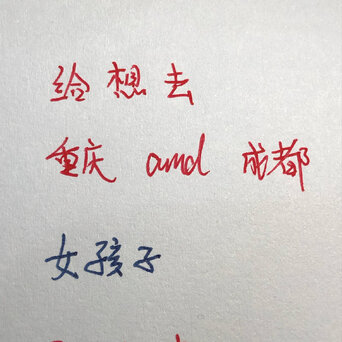 给想去
重庆 and 成都
女孩子